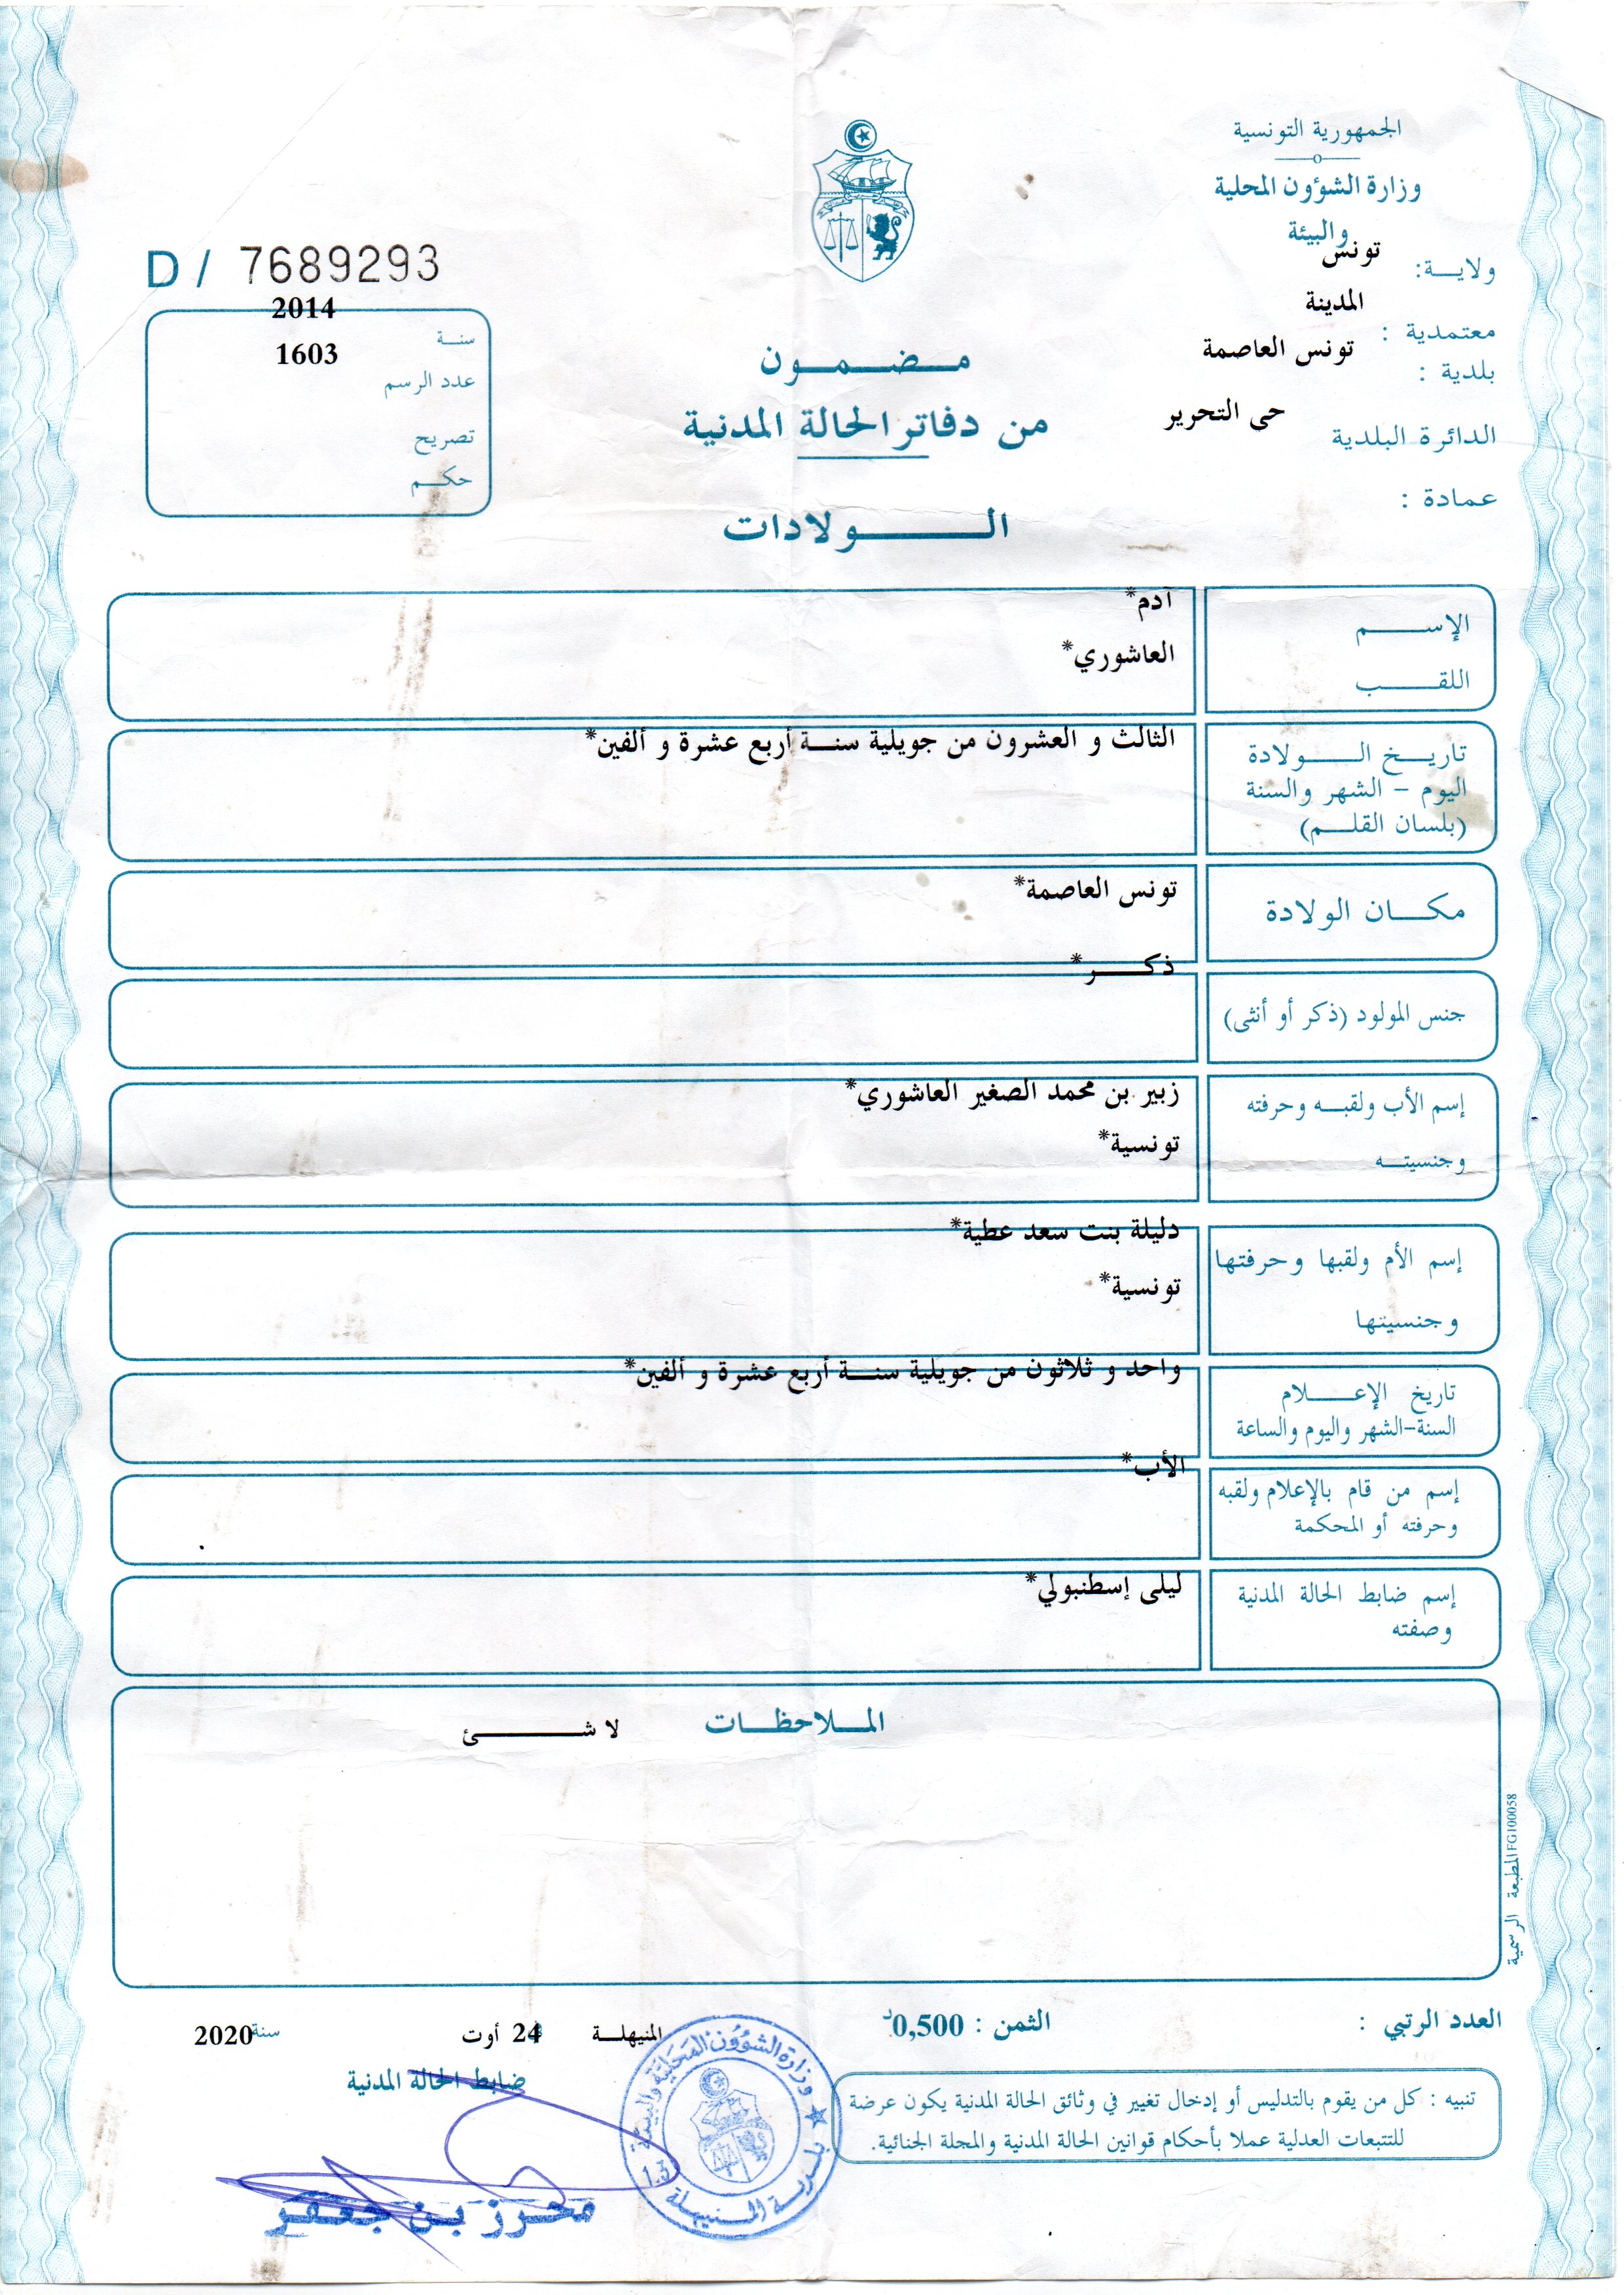 الجمهورية التونسية
وزارة الشؤون المحلية
والبيئة
ولايـــة: تونس
معتمدية : المدينة
بلدية : تونس العاصمة
الدائرة البلدية حى التحرير
عمادة :
مـضـمـون
من دفاتر الحالة المدنية
الـولادات
D / 7689293
سنة 2014
عدد الرسم 1603
تصريح
حكم
الإسـم آدم*
اللقـب العاشوري*
تاريـخ الـولادة الثالث و العشرون من جويلية سنة أربع عشرة و ألفين*
اليوم - الشهر والسنة
(بلسان القلـم)
مكـان الولادة تونس العاصمة*
جنس المولود (ذكر أو أنثى) ذكـر*
إسم الأب ولقبـه وحرفته زبير بن محمد الصغير العاشوري*
وجنسيتـه تونسية*
إسم الأم ولقبها وحرفتها دليلة بنت سعد عطية*
وجنسيتها تونسية*
تاريخ الإعـلام واحد و ثلاثون من جويلية سنة أربع عشرة و ألفين*
السنة-الشهر واليوم والساعة
إسم من قام بالإعلام ولقبه الأب*
وحرفته أو المحكمة
إسم ضابط الحالة المدنية ليلى إسطنبولي*
وصفته
المـلاحظـات لا شـئ
المطبعة الرسمية FG100058
العدد الرتبي :
الثمن : 0,500د
المنيهلـة 24 أوت سنة 2020
ضابط الحالة المدنية
محرز بن جعفر
وزارة الشؤون المحلية والبيئة
بلدية المنيهلة
1.3
تنبيه : كل من يقوم بالتدليس أو إدخال تغيير في وثائق الحالة المدنية يكون عرضة
للتتبعات العدلية عملا بأحكام قوانين الحالة المدنية والمجلة الجنائية.